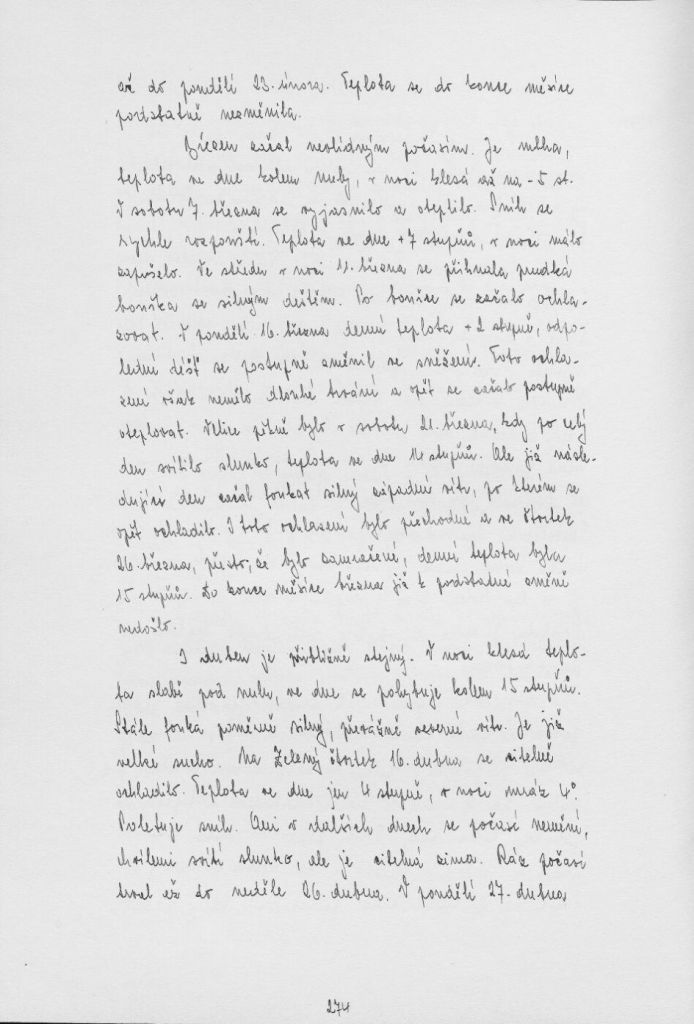 až do pondělí 23. února. Teplota se do konce měsíce
podstatně nezměnila.
Březen začal nevlídným počasím. Je mlha,
teplota ve dne kolem nuly, v noci klesá až na -5 st.
V sobotu 7. března se vyjasnilo a oteplilo. Sníh se
rychle rozpouští. Teplota ve dne +7 stupňů, v noci málo
zapršelo. Ve středu v noci 11. března se přihnala prudká
bouřka se silným deštěm. Po bouřce se začalo ochla-
zovat. V pondělí 16. března denní teplota +2 stupně, odpo-
lední déšť se postupně změnil ve sněžení. Toto ochla-
zení však nemělo dlouhé trvání a opět se začalo postupně
oteplovat. Velice pěkně bylo v sobotu 21. března, kdy po celý
den svítilo slunko, teplota ve dne 14 stupňů. Ale již násle-
dující den začal foukat silný západní vítr, po kterém se
opět ochladilo. I toto ochlazení bylo přechodné a ve čtvrtek
26. března, přesto, že bylo zamračené, denní teplota byla
15 stupňů. Do konce měsíce března již k podstatné změně
nedošlo.
I duben je přibližně stejný. V noci klesá teplo-
ta slabě pod nulu, ve dne se pohybuje kolem 15 stupňů.
Stále fouká poměrně silný, převážně severní vítr. Je již
velké sucho. Na Zelený čtvrtek 16. dubna se citelně
ochladilo. Teplota ve dne jen 4 stupně, v noci mráz 4°.
Poletuje sníh. Ani v dalších dnech se počasí nemění,
chvílemi svítí slunko, ale je citelná zima. Ráz počasí
trval až do neděle 26. dubna. V pondělí 27. dubna
274